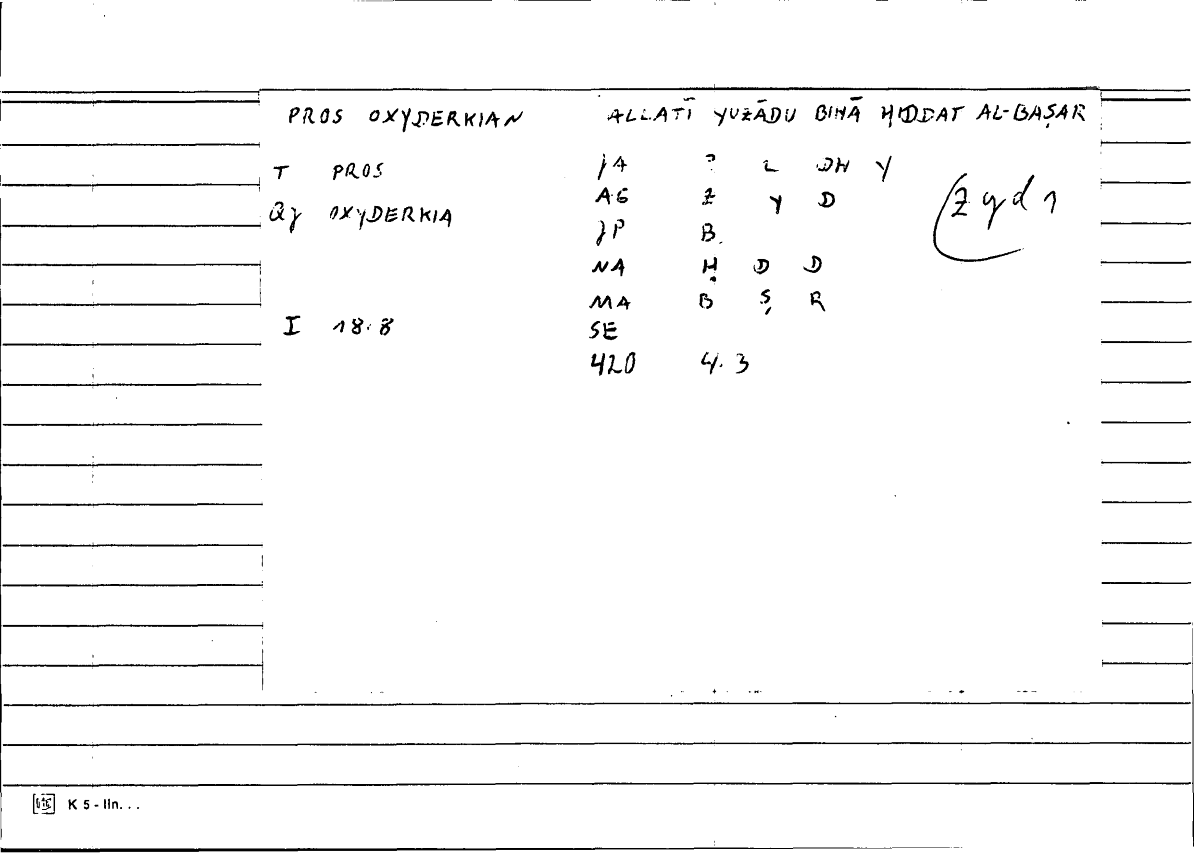 PROS OXYDERKIAN ALLATĪ YUZĀDU BIHĀ ḤIDDAT AL-BAṢAR
T PROS JA ? L DH Y
AG Z Y D zyd 1
QJ OXYDERKIA
JP B
NA Ḥ D D
MA B Ṣ R
I 18.8 SE
420 4.3
K 5 - lIn. . .